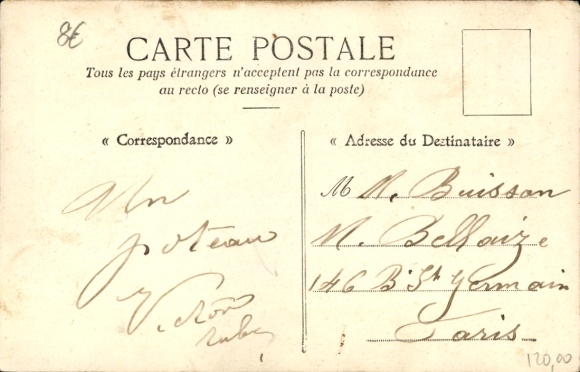 8€
CARTE POSTALE
Tous les pays étrangers n'acceptent pas la correspondance
au recto (se renseigner à la poste)
« Correspondance »
« Adresse du Destinataire »
Un
poteau
Victor
M M. Buisson
M. Bellaize
146 Bd St Germain
Paris
120,00